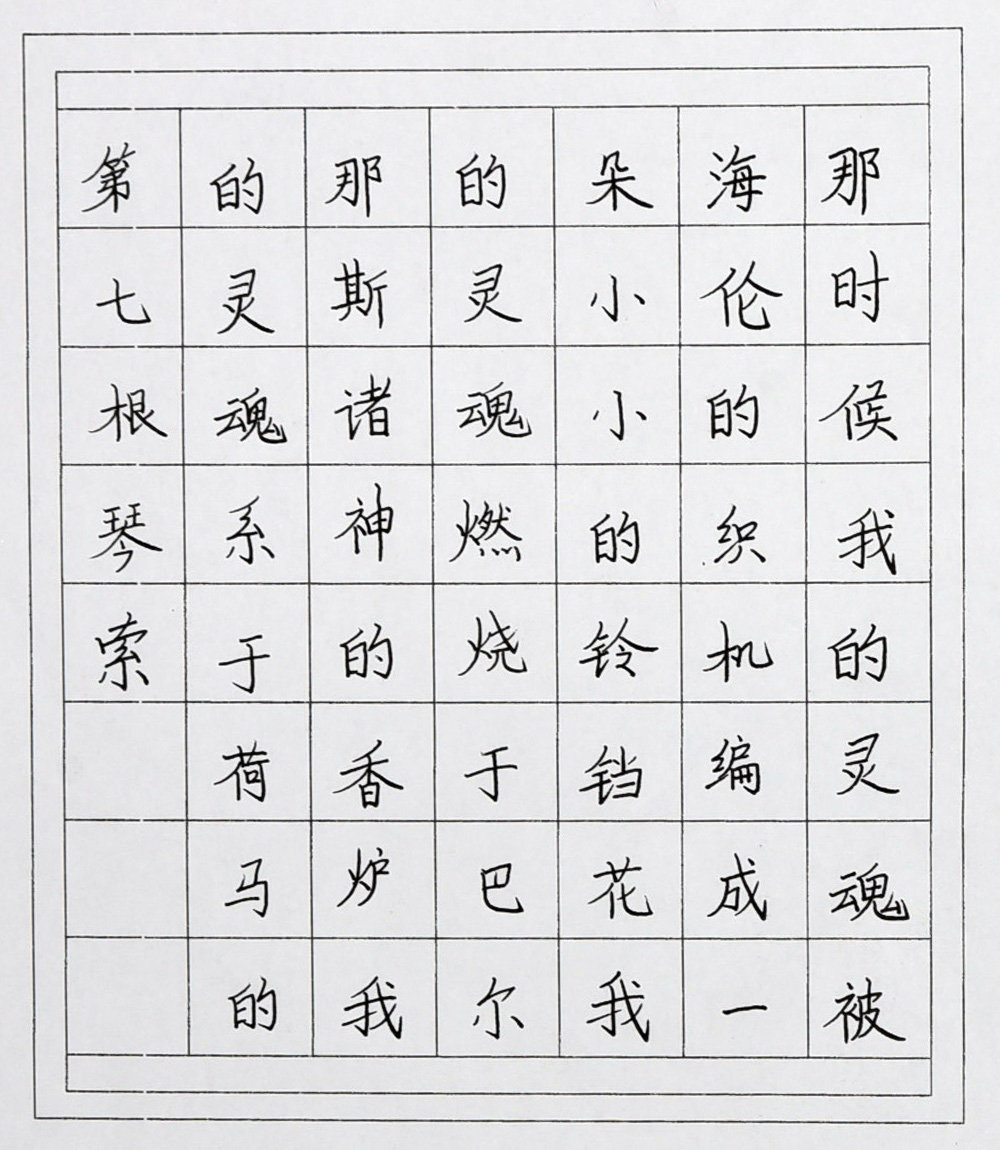 那时候我的灵魂被
海伦的织机编成一
朵小小的铃铛花我
的灵魂燃烧于巴尔
那斯诸神的香炉我
的灵魂系于荷马的
第七根琴索